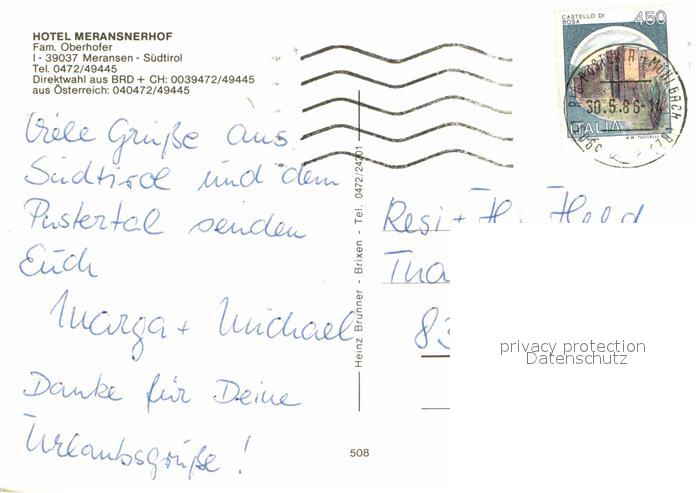 HOTEL MERANSNERHOF
Fam. Oberhofer
I - 39037 Meransen - Südtirol
Tel. 0472/49445
Direktwahl aus BRD + CH: 0039472/49445
aus Österreich: 040472/49445
CASTELLO DI BOSA
450
30.5.86
ITALIA
Viele Grüße aus
Südtirol und dem
Pustertal senden
Euch
Marga + Michael
Danke für Deine
Urlaubsgrüße!
Heinz Brunner - Brixen - Tel. 0472/24201
Resi + H.
Tha
83
privacy protection
Datenschutz
508